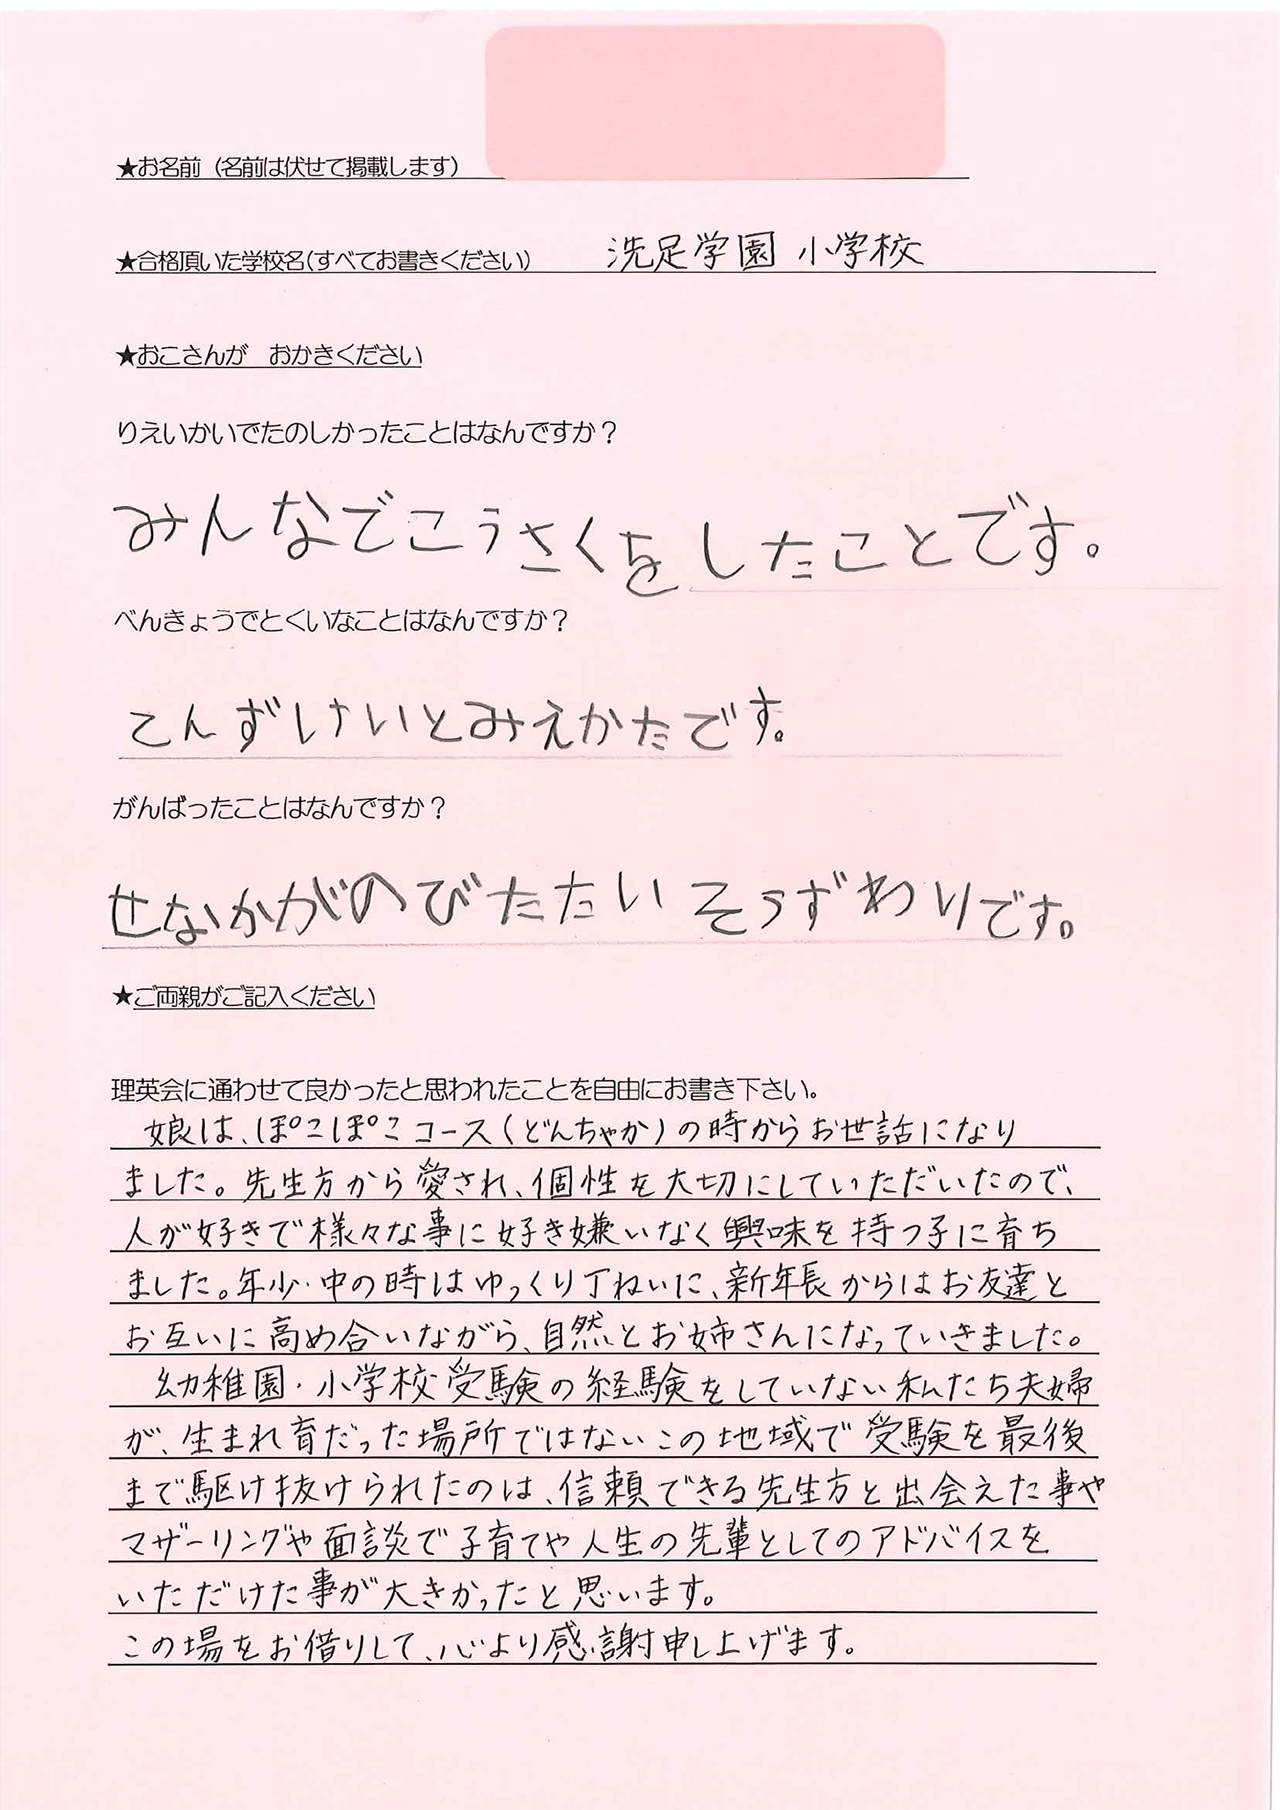 ★お名前（名前は伏せて掲載します）
★合格頂いた学校名（すべてお書きください） 洗足学園 小学校
★おこさんが　おかきください
りえいかいでたのしかったことはなんですか？
みんなでこうさくをしたことです。
べんきょうでとくいなことはなんですか？
てんずけいとみえかたです。
がんばったことはなんですか？
せなかがのびたたいそうずわりです。
★ご両親がご記入ください
理英会に通わせて良かったと思われたことを自由にお書き下さい。
娘は、ぽこぽこコース（どんちゃか）の時からお世話になり
ました。先生方から愛され、個性を大切にしていただいたので、
人が好きで様々な事に好き嫌いなく興味を持つ子に育ち
ました。年少・中の時はゆっくり丁ねいに、新年長からはお友達と
お互いに高め合いながら、自然とお姉さんになっていきました。
幼稚園・小学校受験の経験をしていない私たち夫婦
が、生まれ育だった場所ではないこの地域で受験を最後
まで駆け抜けられたのは、信頼できる先生方と出会えた事や
マザーリングや面談で子育てや人生の先輩としてのアドバイスを
いただけた事が大きかったと思います。
この場をお借りして、心より感謝申し上げます。